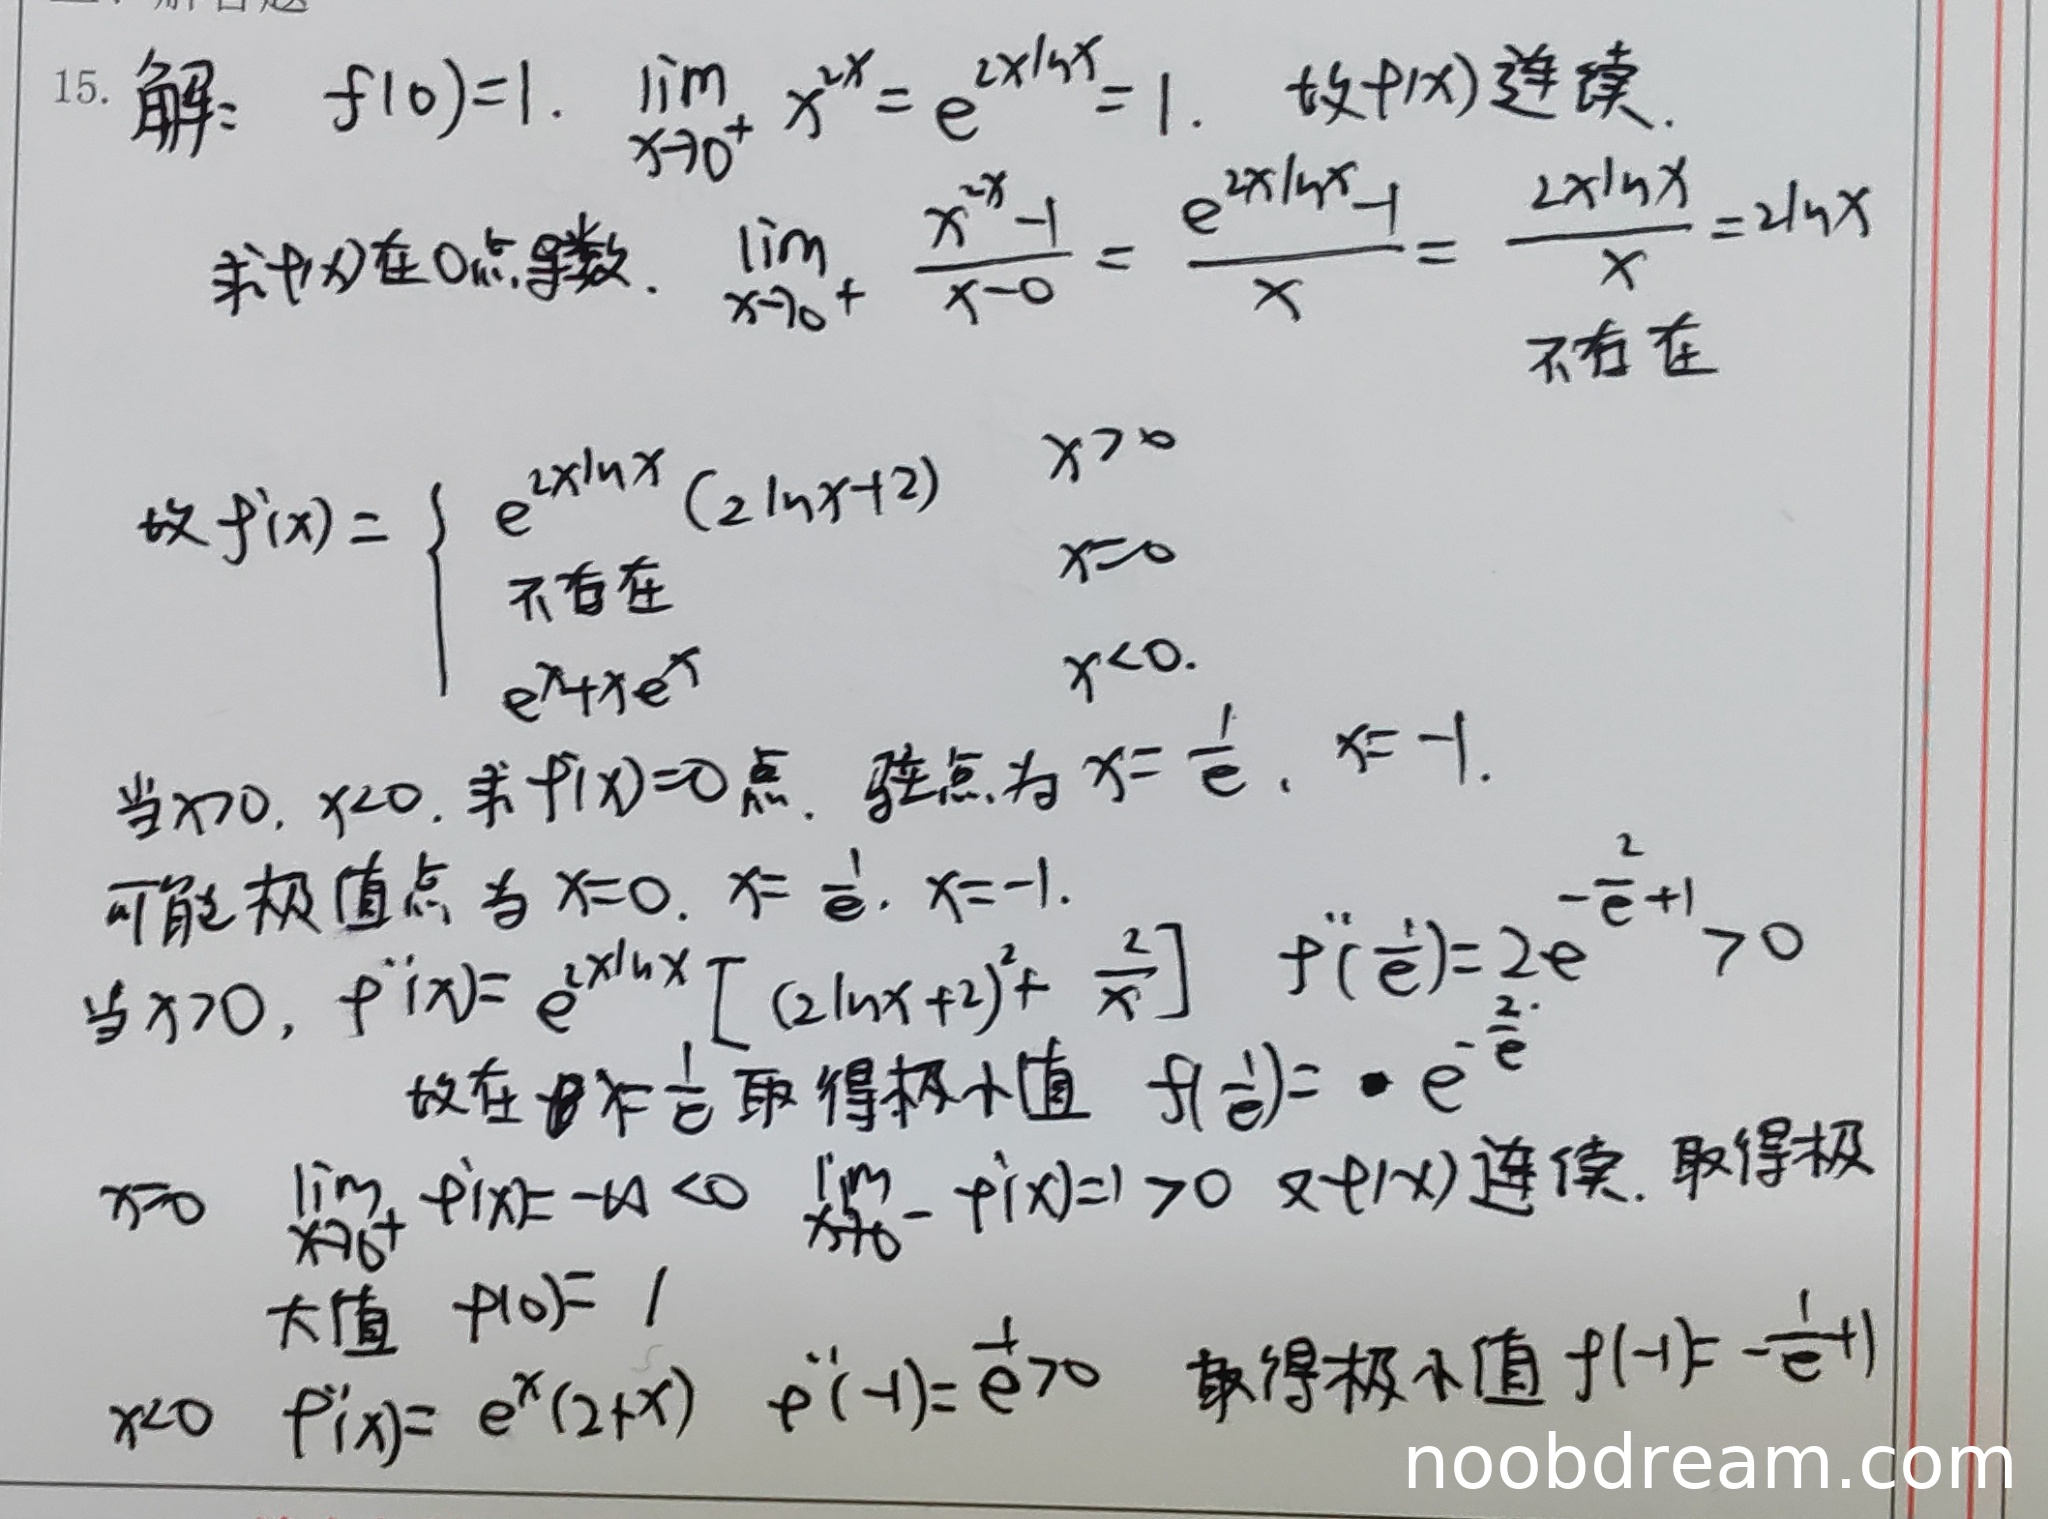 15. 解: f(0)=1. lim x→0⁺ x^{2x} = e^{2xlnx} = 1. 故f(x)连续.
求f(x)在0点导数. lim x→0⁺ (x^{2x}-1)/(x-0) = (e^{2xlnx}-1)/x = (2xlnx)/x = 2lnx
不存在
故f'(x)= { e^{2xlnx}(2lnx+2) x>0
不存在 x=0
e^x+xe^x x<0.
当x>0, x<0, 求f'(x)=0点. 驻点为 x=1/e, x=-1.
可能极值点为 x=0. x=1/e. x=-1.
当x>0, f''(x)= e^{2xlnx}[(2lnx+2)²+2/x] f''(1/e)=2e^{-2/e+1}>0
故在x=1/e取得极小值 f(1/e)= e^{-2/e}
x=0 lim x→0⁺ f'(x)=-∞<0 lim x→0⁻ f'(x)=1>0 又f(x)连续. 取得极
大值 f(0)=1
x<0 f''(x)= e^x(2+x) f''(-1)=1/e>0 取得极小值 f(-1)=-1/e+1
noobdream.com